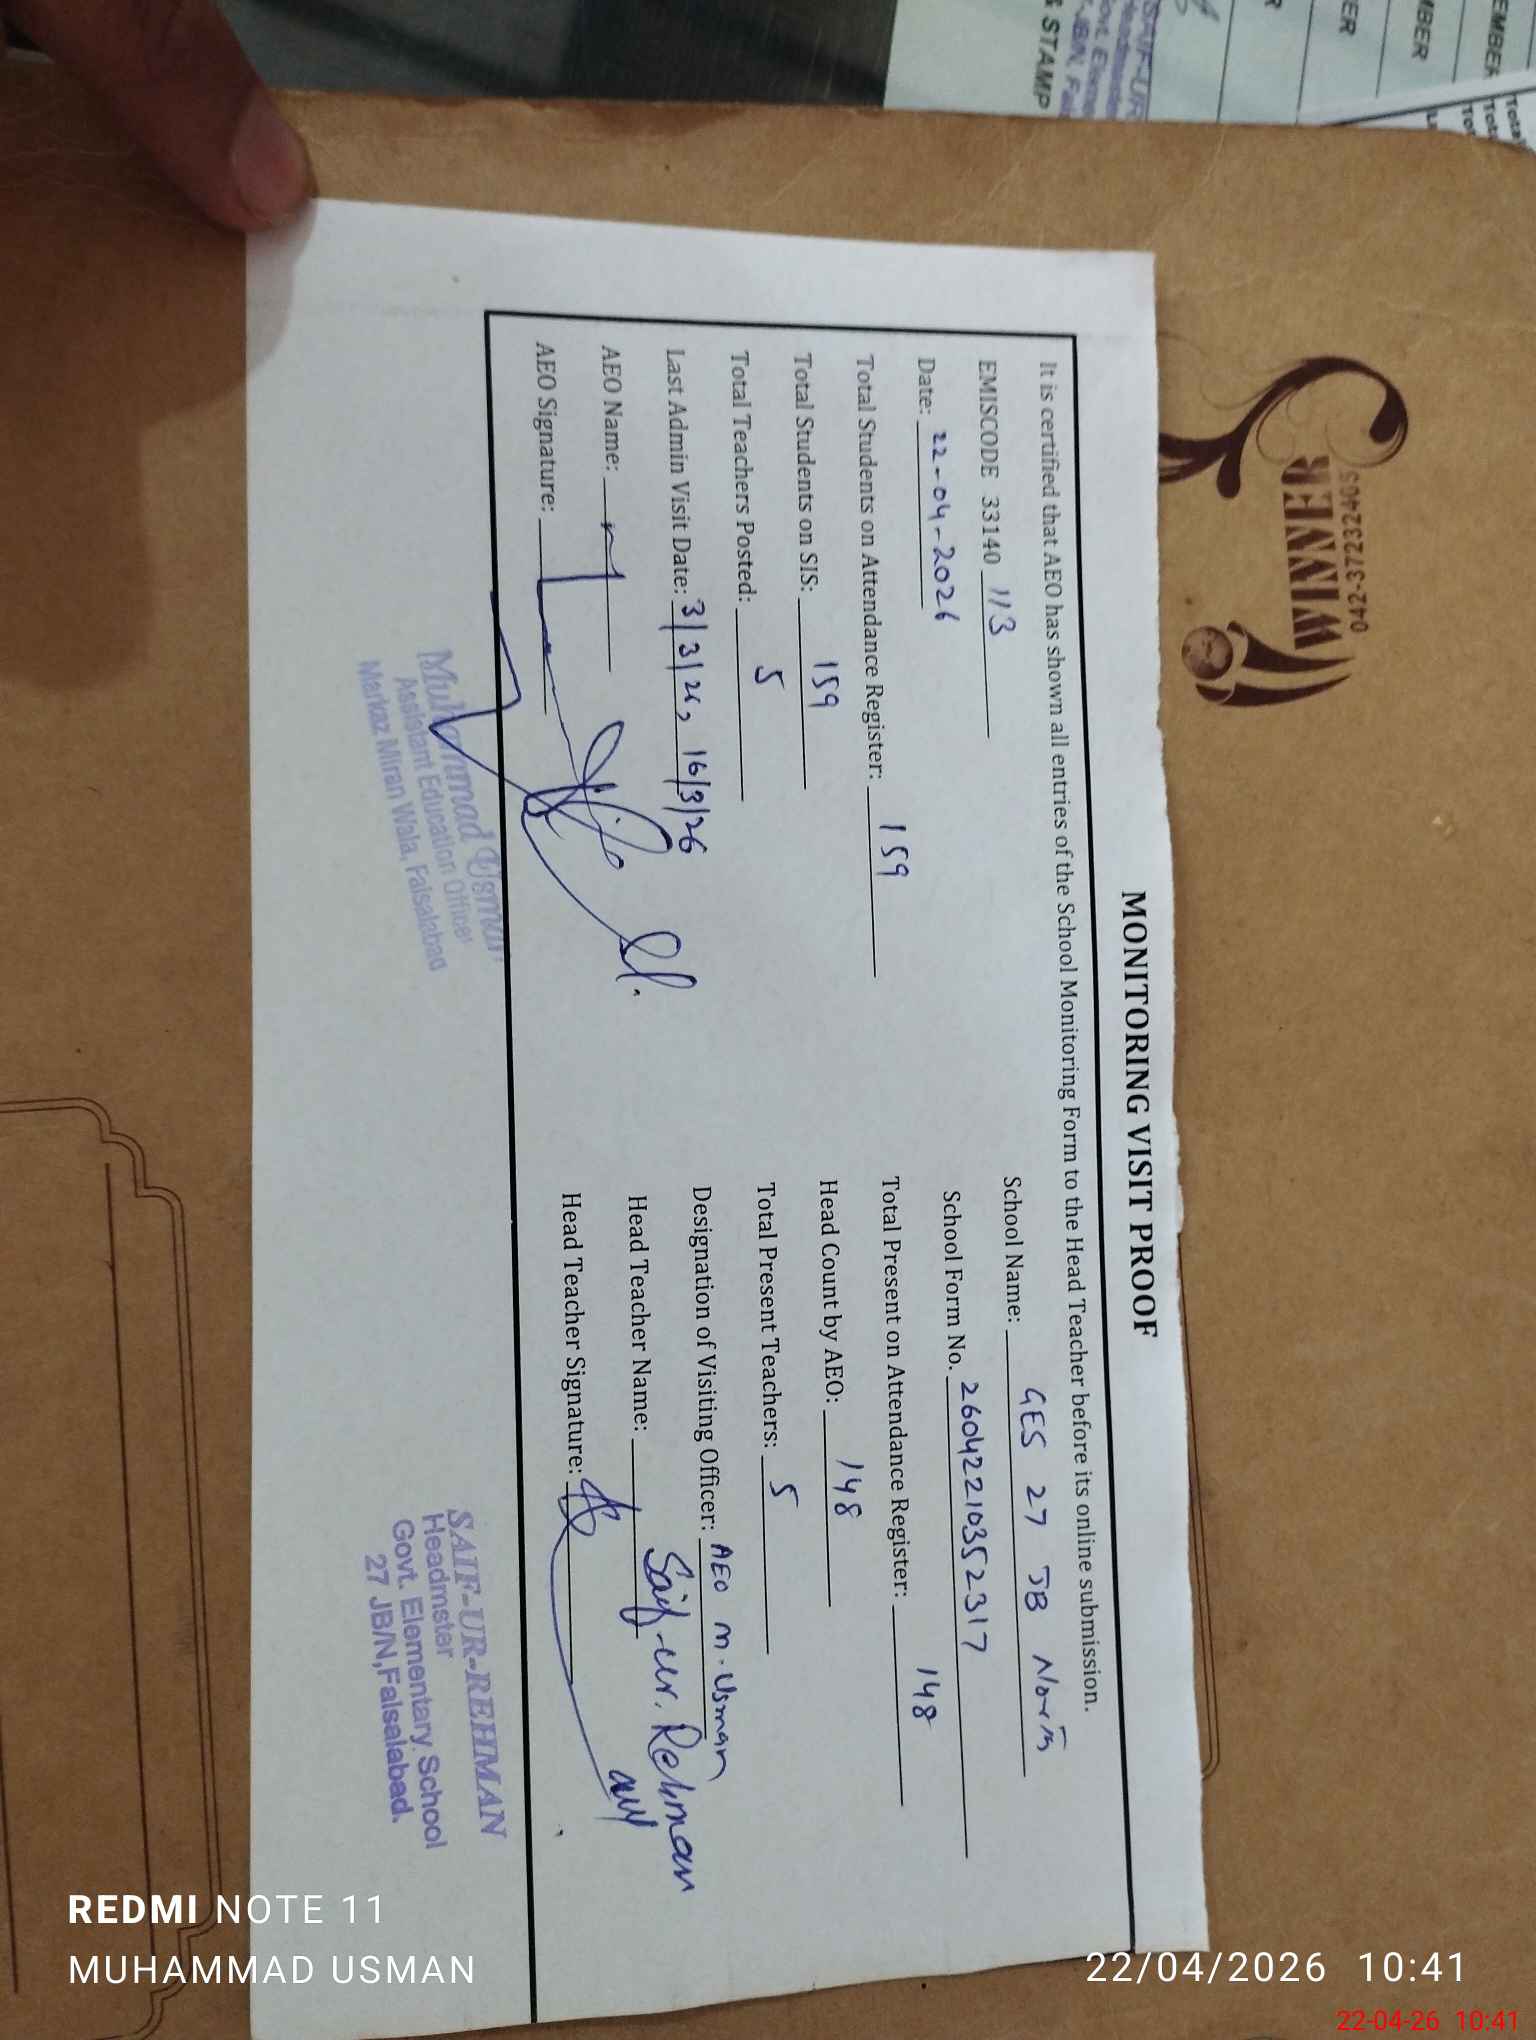 MONITORING VISIT PROOF
It is certified that AEO has shown all entries of the School Monitoring Form to the Head Teacher before its online submission.
EMISCODE 33140 113 School Name: GES 27 JB North
Date: 22-04-2026 School Form No. 2604221035 2317
Total Students on Attendance Register: 159 Total Present on Attendance Register: 148
Total Students on SIS: 159 Head Count by AEO: 148
Total Teachers Posted: 5 Total Present Teachers: 5
Last Admin Visit Date: 3/3/26, 16/3/26 Designation of Visiting Officer: AEO M. Usman
AEO Name: Head Teacher Name: Saif-ur-Rehman
AEO Signature: Head Teacher Signature:
Muhammad Usman
Assistant Education Officer
Markaz Miran Wala, Faisalabad
SAIF-UR-REHMAN
Headmster
Govt. Elementary School
27 JB/N, Faisalabad.
WINNER
042-37232405
& STAMP
REDMI NOTE 11
MUHAMMAD USMAN
22/04/2026 10:41
22-04-26 10:41